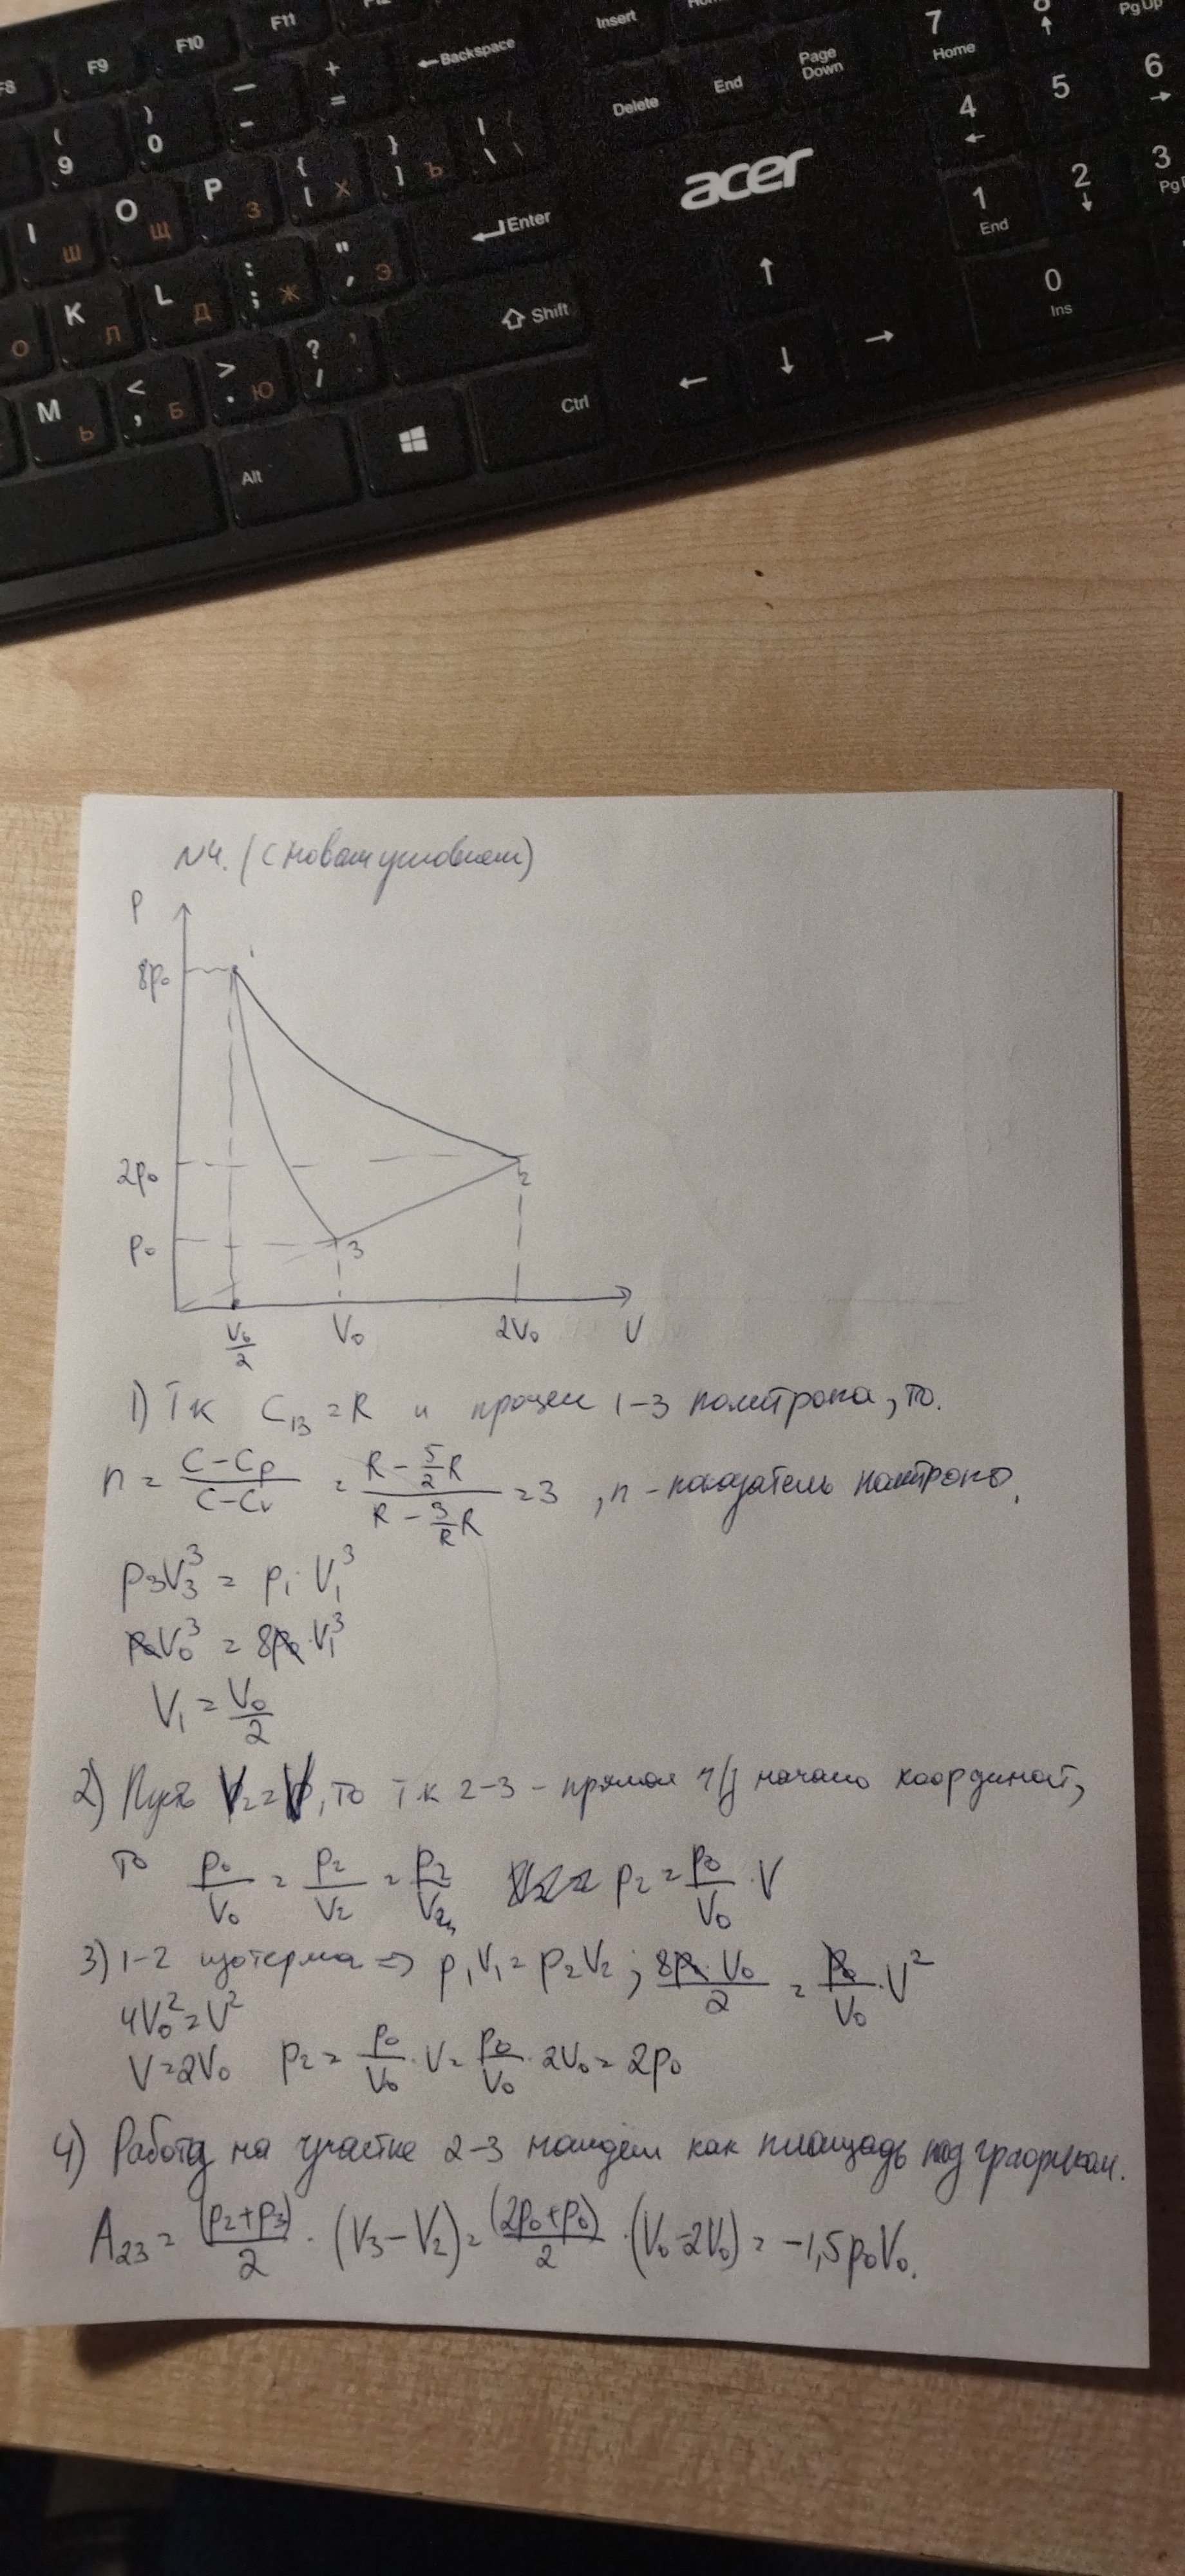 F8 F9 F10 F11 F12 Insert Home
( 9 ) 0 — - + = ←Backspace Delete End Page Down 7 Home 8 ↑ PgUp
I Ш O Щ P З { [ Х } ] Ъ | \ / \ 4 ← 5 6 →
acer
О K Л L Д : ; Ж " ' Э Enter 1 End 2 ↓ 3
M Ь < , Б > . Ю ? / , Shift ↑ 0 Ins
Alt Ctrl ← ↓ →
N4. (С новым условием)
P
8p₀ 1
2p₀ 2
p₀ 3
V₀/2 V₀ 2V₀ V
1) Тк C₁₃ = R и процесс 1-3 политропа, то.
n = (C - Cp)/(C - Cv) = (R - 5/2 R)/(R - 3/R R) = 3 , n - показатель политропы.
p₃V₃³ = p₁ · V₁³
p₀V₀³ = 8p₀ · V₁³
V₁ = V₀/2
2) Пусть V₂ = V, то т.к 2-3 - прямая ч/з начало координат,
то p₀/V₀ = p₂/V₂ = p₂/V₂, p₂ = p₀/V₀ · V
3) 1-2 изотерма => p₁V₁ = p₂V₂ ; 8p₀ · V₀/2 = p₀/V₀ · V²
4V₀² = V²
V = 2V₀ p₂ = p₀/V₀ · V = p₀/V₀ · 2V₀ = 2p₀
4) Работу на участке 2-3 найдём как площадь под графиком.
A₂₃ = (p₂ + p₃)/2 · (V₃ - V₂) = (2p₀ + p₀)/2 · (V₀ - 2V₀) = -1,5p₀V₀.